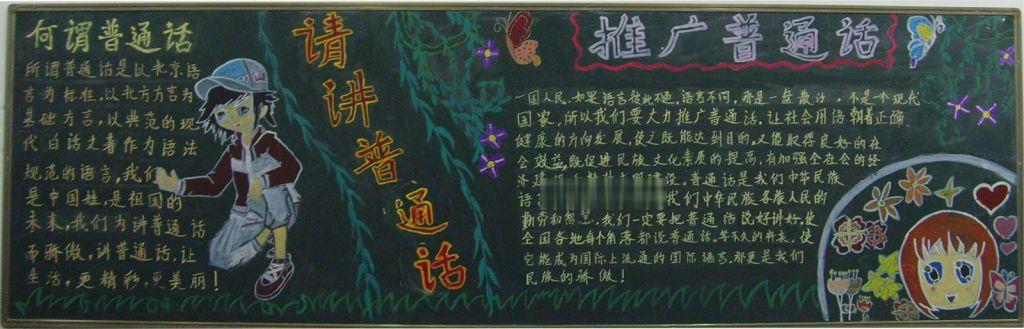 何谓普通话
所谓普通话是以北京语
言为标准,以北方方言为
基础方言,以典范的现
代白话文著作为语法
规范的语言,我们
是中国娃,是祖国的
未来,我们为讲普通话
而骄傲,讲普通话,让
生活,更精彩,更美丽!
请讲普通话
推广普通话
一国人民,如果语言彼此不通,语言不同,那是一盘散沙,不是个现代
国家,所以我们要大力推广普通话,让社会用语朝着正确
健康的方向发展,使之既能达到目的,又能取得良好的社
会效益,既促进民族文化素质的提高,有加强全社会的经
济建设。普通话是我们中华民族
语言我们中华民族各族人民的
勤劳和智慧,我们一定要把普通话说好讲好,使
全国各地每个角落都说普通话,等不久的将来,使
它能成为国际上流通的国际语言,那更是我们
民族的骄傲!